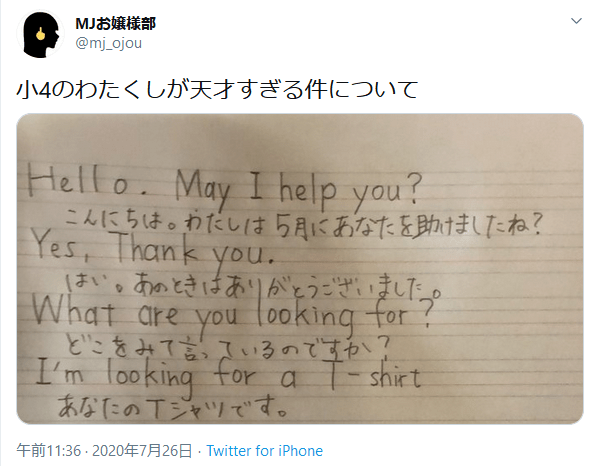 MJお嬢様部
@mj_ojou
小4のわたくしが天才すぎる件について
Hello. May I help you?
こんにちは。わたしは5月にあなたを助けましたね?
Yes, Thank you.
はい。あのときはありがとうございました。
What are you looking for?
どこをみて言っているのですか?
I'm looking for a T-shirt
あなたのTシャツです。
午前11:36 · 2020年7月26日 · Twitter for iPhone